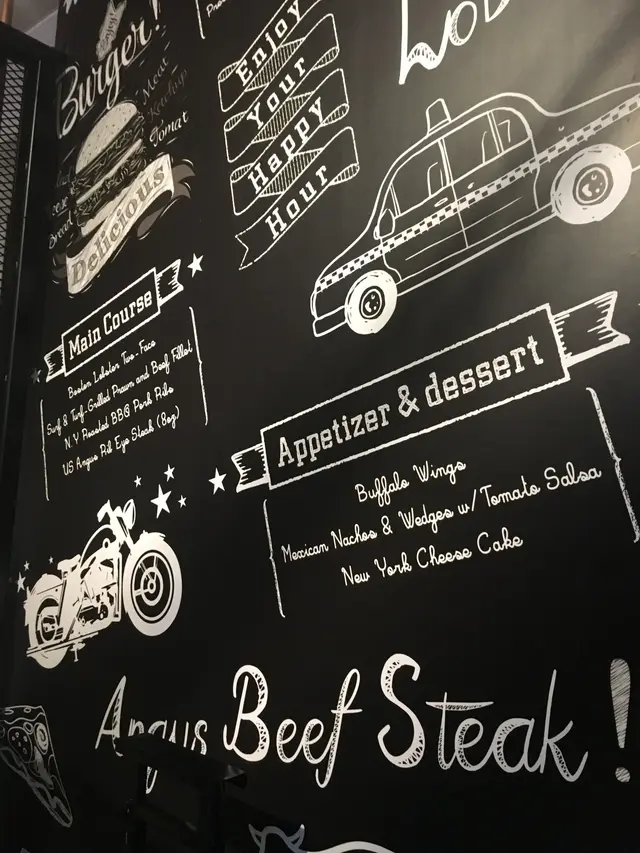 Enjoy
Burger!
Meat
Ketchup
Tomat
Bread
Delicious
Enjoy
Your
Happy
Hour
Main Course
Boston Lobster Two-Face
Surf & Turf-Grilled Prawn and Beef Fillet
N.Y Roasted BBQ Pork Ribs
US Angus Rib Eye Steak (8oz)
Appetizer & dessert
Buffalo Wings
Mexican Nachos & Wedges w/Tomato Salsa
New York Cheese Cake
Angus Beef Steak!